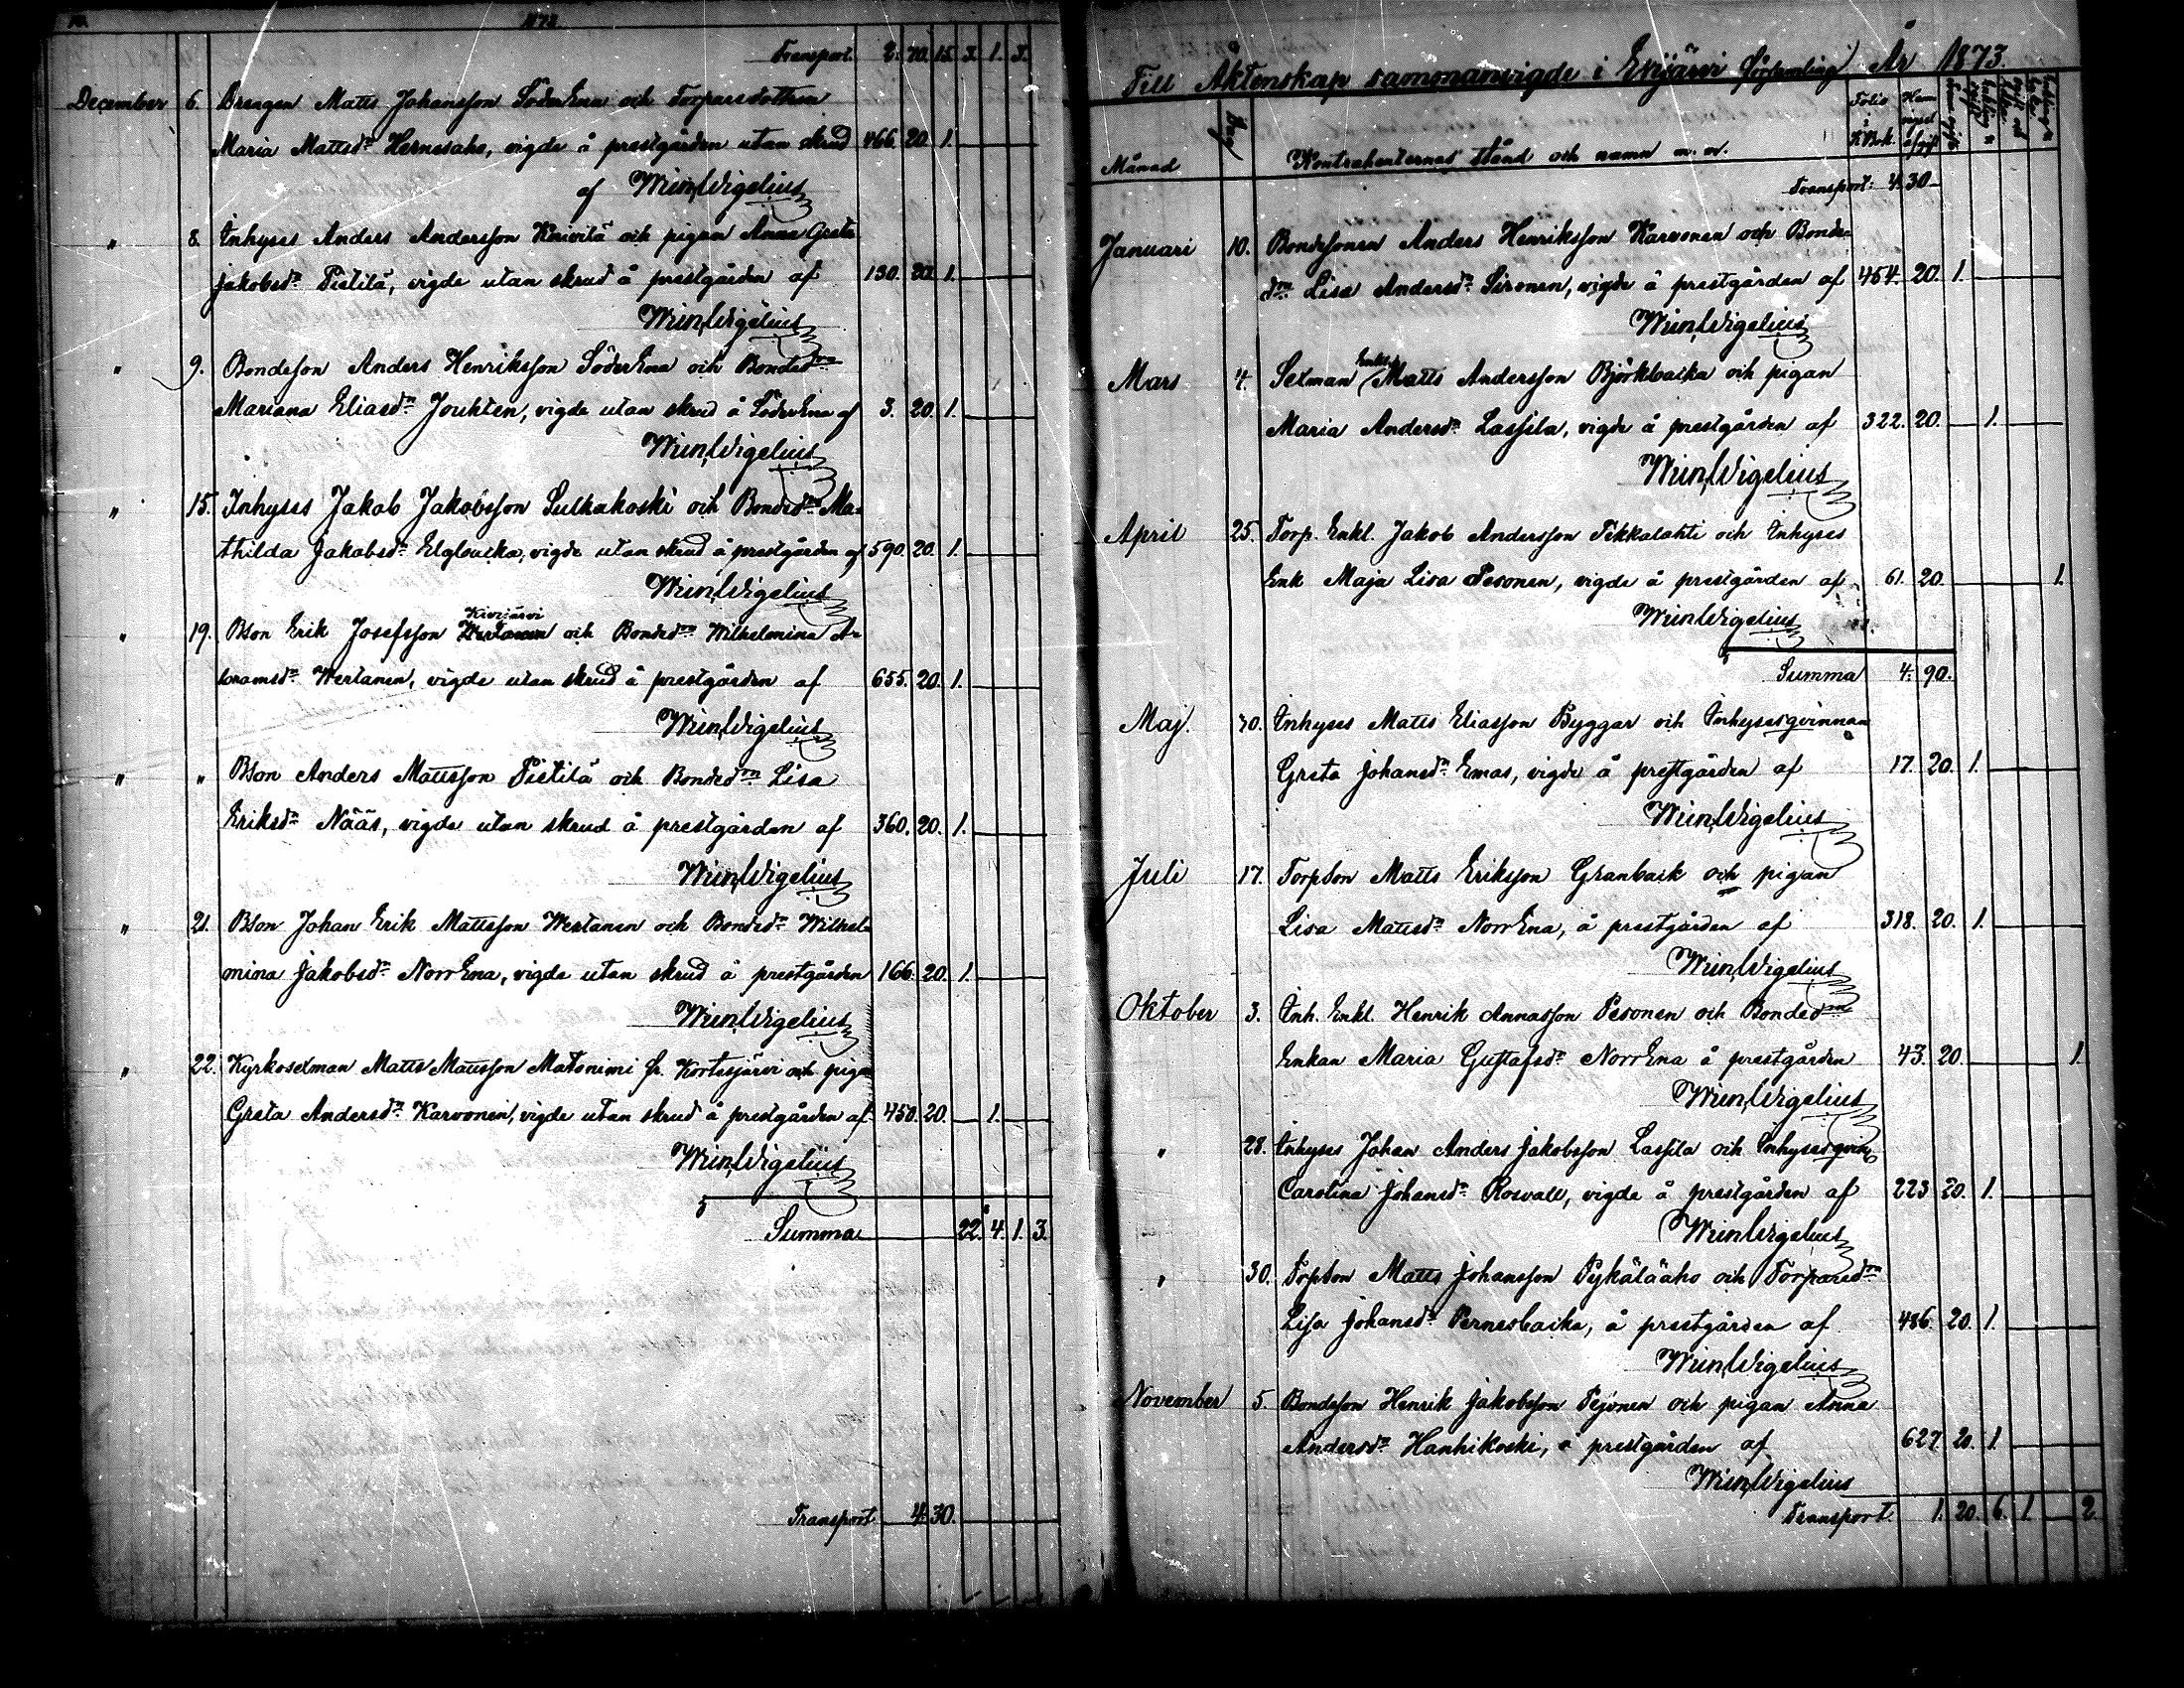 1872.
Transport. 2. 70. 15. 3. 1. 3.
December 6. Drengen Matts Johansson SöderEna och Torparedottren
Maria Mattsdr Hernesaho, vigde å prestgården utan skrud 466. 20. 1.
af WmnWigelius
" 8. Inhyses Anders Andersson Kniivilä och pigan Anna Greta
Jakobsdr Pietilä, vigde utan skrud å prestgården af 130. 20. 1.
WmnWigelius
" 9. Bondeson Anders Henriksson SöderEna och Bondedrn
Mariana Eliasdr Jouhten, vigde utan skrud å SöderEna af 3. 20. 1.
WmnWigelius
" 15. Inhyses Jakob Jakobsson Sulkakoski och Bondedrn Ma-
thilda Jakobsdr Elgbacka, vigde utan skrud å prestgården af 590. 20. 1.
WmnWigelius
Kivijärvi
" 19. Bson Erik Josefsson Wertanen och Bondedrn Wilhelmina A-
bramsdr Wertanen, vigde utan skrud å prestgården af 655. 20. 1.
WmnWigelius
" " Bson Anders Mattsson Pietilä och Bondedrn Lisa
Eriksdr Nääs, vigde utan skrud å prestgården af 360. 20. 1.
WmnWigelius
" 21. Bson Johan Erik Mattsson Wertanen och Bondedr Wilhel-
mina Jakobsdr NorrEna, vigde utan skrud å prestgården 166. 20. 1.
WmnWigelius
" 22. Kyrkosexman Matts Mattsson Matonimi fr. Kortesjärvi och pigan
Greta Andersdr Karvonen, vigde utan skrud å prestgården af 450. 20. 1.
WmnWigelius
Summa 22. 4. 1. 3.
Transport 4. 30.
Till Äktenskap sammanvigde i Evijärvi församling År 1873.
Månad Dag Kontrahenternas stånd och namn m. m. Folio i K.Bok. Hem vigsel afgift
Transport: 4. 30
Januari 10. Bondesonen Anders Henriksson Karvonen och Bonde-
drn Lisa Andersdr Sironen, vigde å prestgården af 454. 20. 1.
WmnWigelius
Enkl.
Mars 4. Sexman Matts Andersson Björkbacka och pigan
Maria Andersdr Lassila, vigde å prestgården af 322. 20. 1.
WmnWigelius
April 25. Torp. Enkl. Jakob Andersson Pekkalahti och Inhyses
Enk Maja Lisa Pesonen, vigde å prestgården af 61. 20. 1.
WmnWigelius
Summa 4. 90.
Maj. 30. Inhyses Matts Eliasson Byggar och Inhysesqvinnan
Greta Johansdr Emas, vigde å prestgården af 17. 20. 1.
WmnWigelius
Juli 17. Torpson Matts Eriksson Granback och pigan
Lisa Mattsdr NorrEna, å prestgården af 318. 20. 1.
WmnWigelius
Oktober 3. Inh. Enkl. Henrik Annasson Pesonen och Bondedrn
Enkan Maria Gustafsdr NorrEna å prestgården 43. 20. 1.
WmnWigelius
" 28. Inhyses Johan Anders Jakobsson Lassila och Inhysesqvin
Carolina Johansdr Rosvall, vigde å prestgården af 223 20. 1.
WmnWigelius
" 30. Torpson Matts Johansson Pykäläaho och Torparedrn
Lisa Johansdr Pernesbacka, å prestgården af 486. 20. 1.
WmnWigelius
November 5. Bondeson Henrik Jakobsson Pesonen och pigan Anna
Andersdr Hanhikoski, å prestgården af 627. 20. 1.
WmnWigelius
Transport. 1. 20. 6. 1. 2.